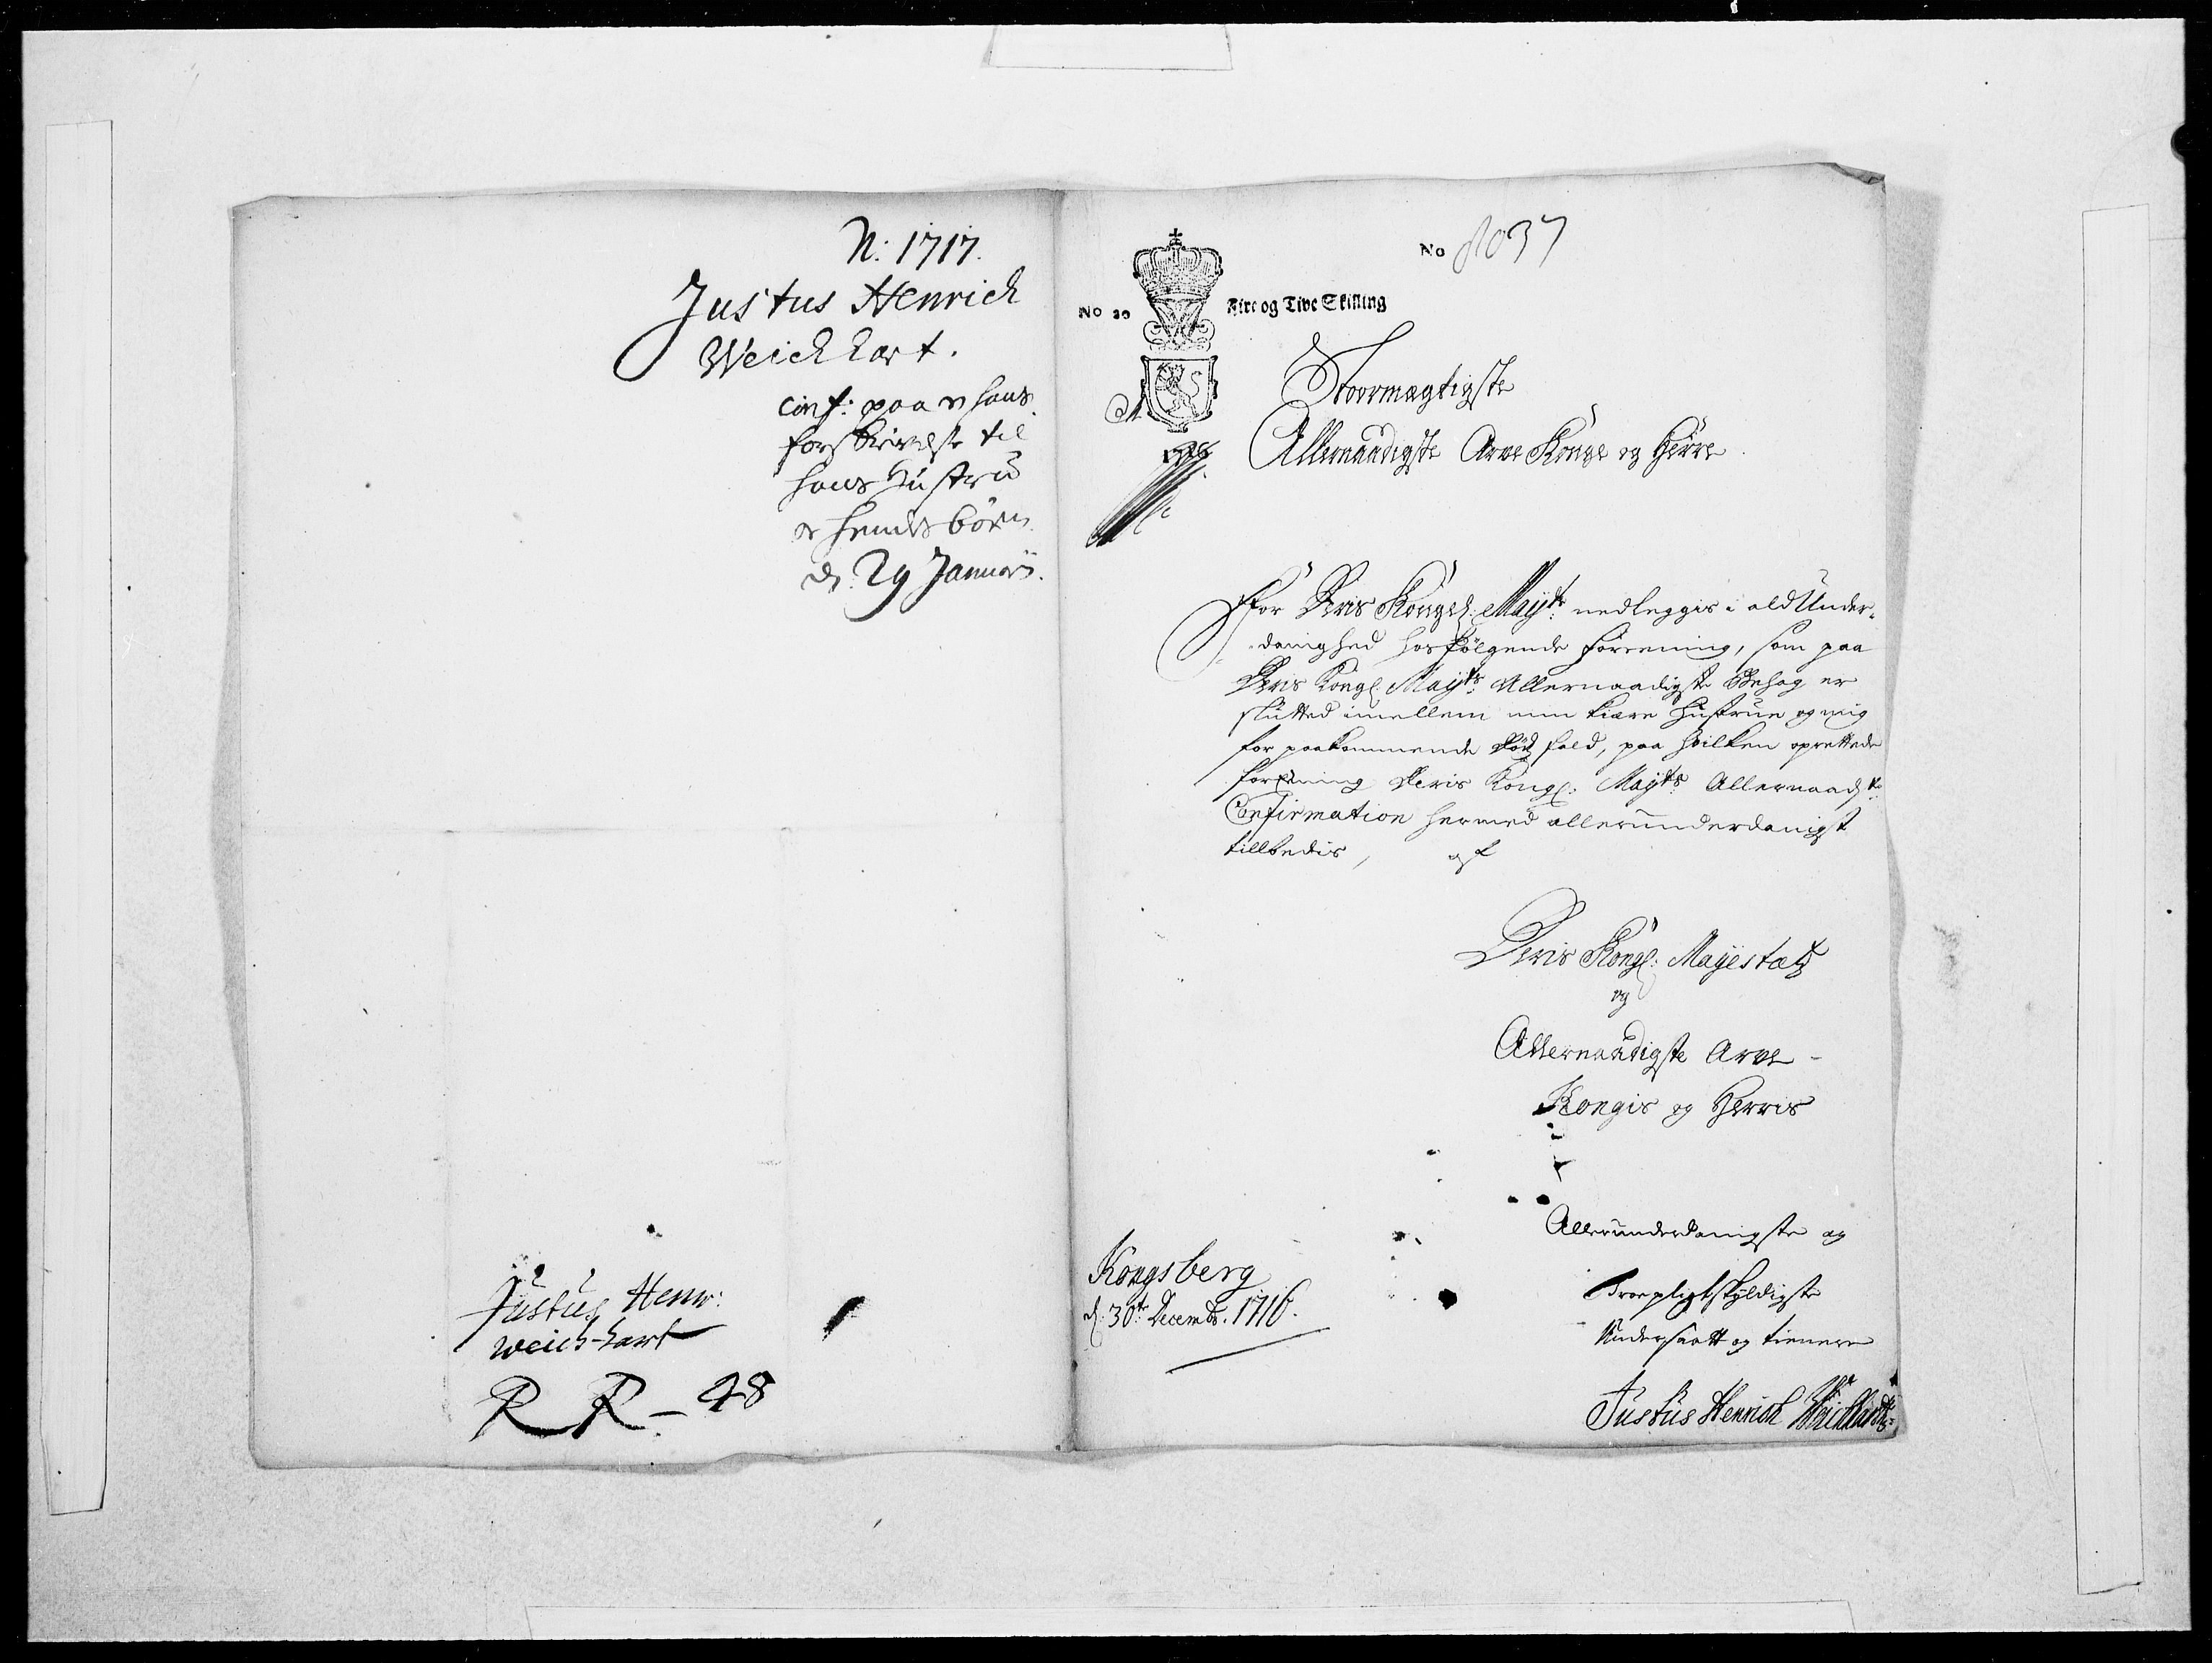 N: 1717.
Justus Henrich
Weichhart.
Conf: paa en hans
forskrivelse til
hans Hustru
og hendes børn
d. 29 Januarii.
Justus Henr:
Weich-hart
R R - 48
No 8037
No 20 Fire og Tive Skilling
1716
Stoormægtigste
Allernaadigste Arve Konge og Herre
For Deris Kongel: Mayts: nedleggis i ald Under-
danighed hosfølgende forrening, som paa
Deris Kongl: Mayts: Allernaadigste Behag er
slutted imellem min kiære Hustrue og mig
for paakommende dødsfald, paa hvilken oprettede
forrening Deris Kongl: Mayts: Allernaadste
Confirmation hermed allerunderdanigst
tillbedis, af
Deris Kongl: Mayestætz
og
Allernaadigste Arve-
Kongis og Herris
Allerunderdanigste og
Troepligtskyldigste
Undersaatt og tienere
Justus Henrich Weichhardt
Kongsberg
d: 30te Decembr. 1716.